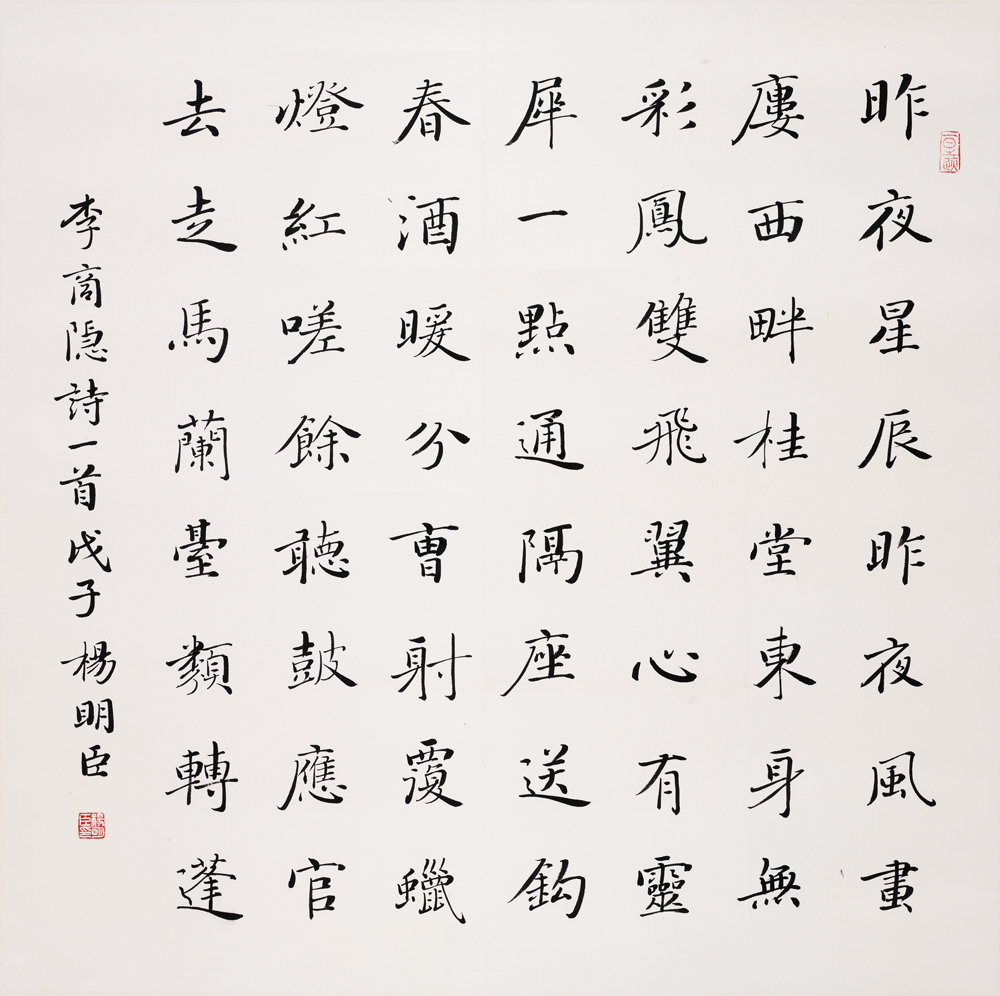 昨夜星辰昨夜風畫
廔西畔桂堂東身無
彩鳳雙飛翼心有靈
犀一點通隔座送鈎
春酒暖分曺射覆蠟
燈紅嗟餘聽皷應官
去走馬蘭臺類轉蓬
李商隐詩一首戊子楊明臣